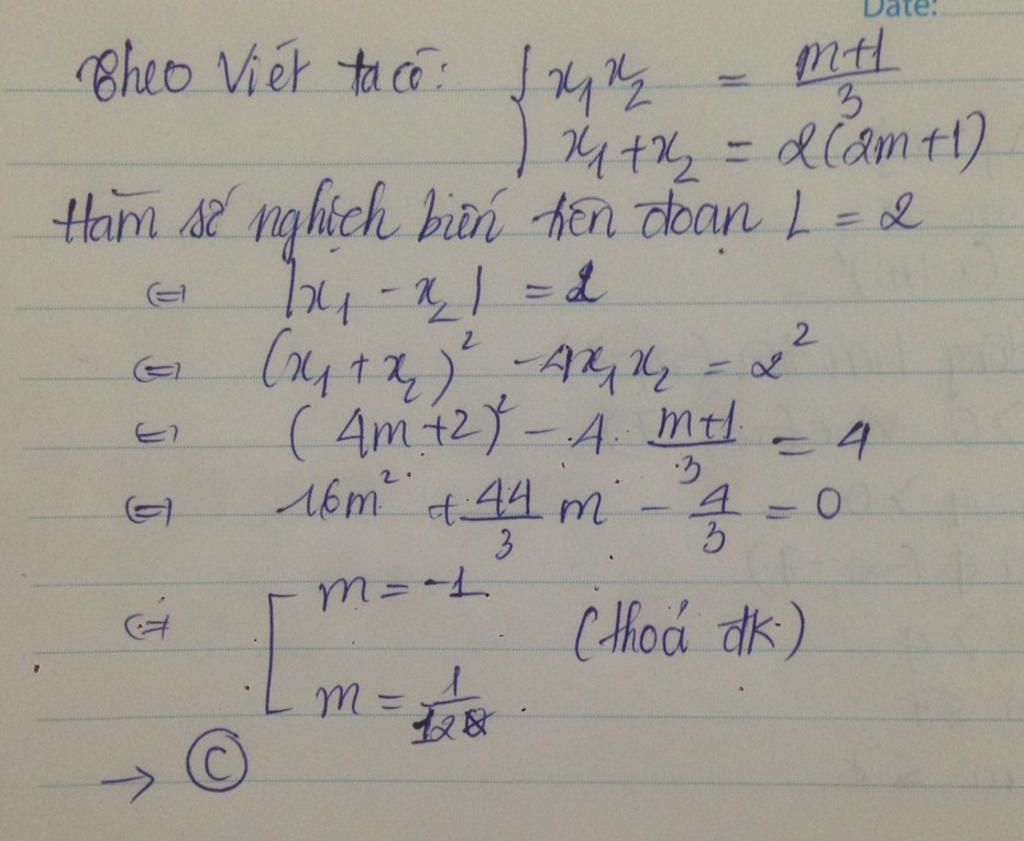 Date:
Theo Viét ta có: { x₁x₂ = (m+1)/3
x₁+x₂ = 2(2m+1)
Hàm số nghịch biến trên đoạn L = 2
⇔ |x₁ - x₂| = 2
⇔ (x₁ + x₂)² - 4x₁x₂ = 2²
⇔ (4m+2)² - 4. (m+1)/3 = 4
⇔ 16m² + 44/3 m - 4/3 = 0
⇔ [ m = -1
(thoả đk)
m = 1/12
→ Ⓒ